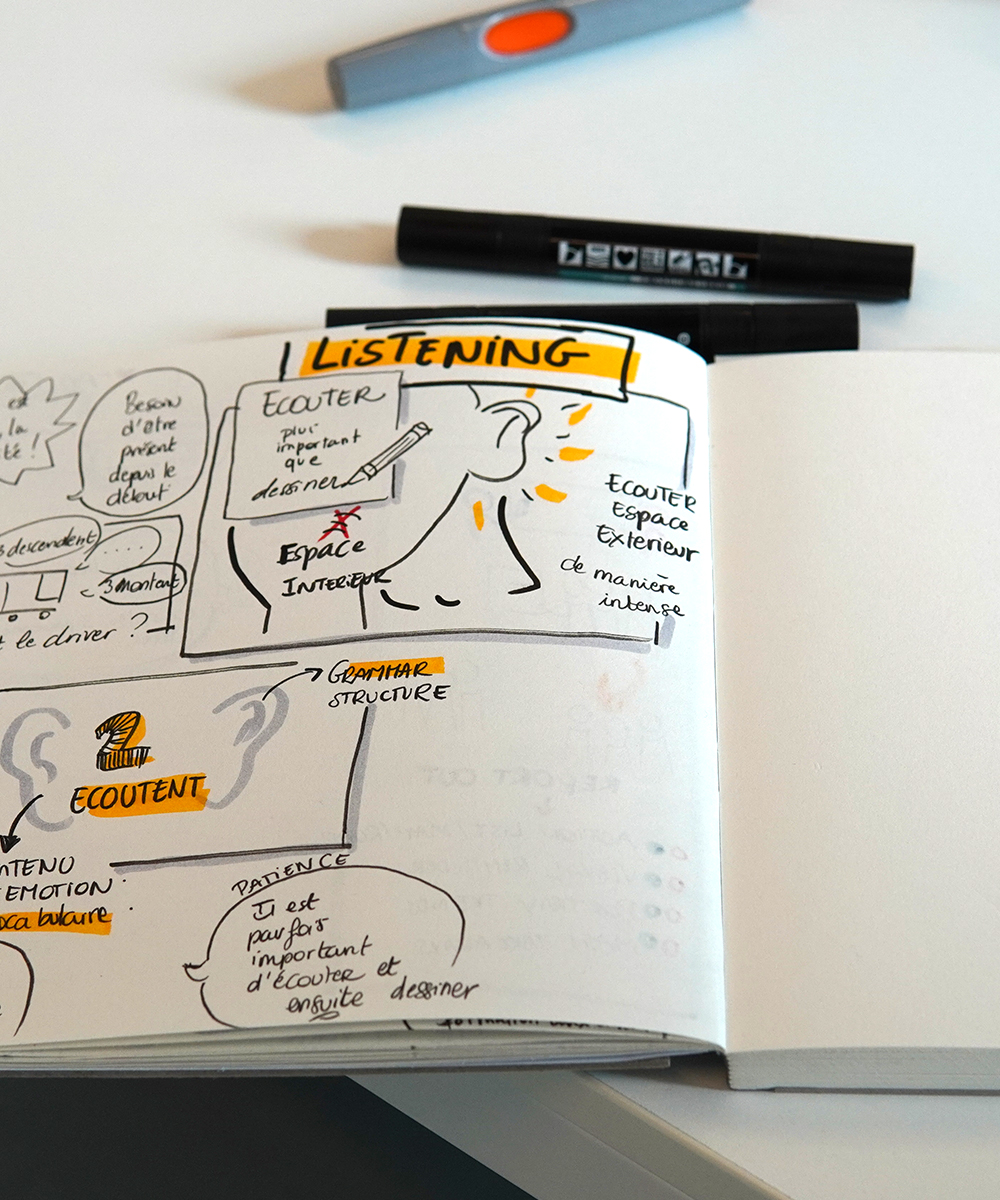 LISTENING
est
la
té !
Besoin
d'être
présent
depuis le
début
ECOUTER
plus
important
que
dessiner
Espace
INTERIEUR
ECOUTER
Espace
Exterieur
de manière
intense
descendent
....
3 montent
le driver ?
GRAMMAR
STRUCTURE
2
ECOUTENT
NTENU
EMOTION
oca bulaire
PATIENCE
Il est
parfois
important
d'écouter et
ensuite dessiner
REPORT OUT